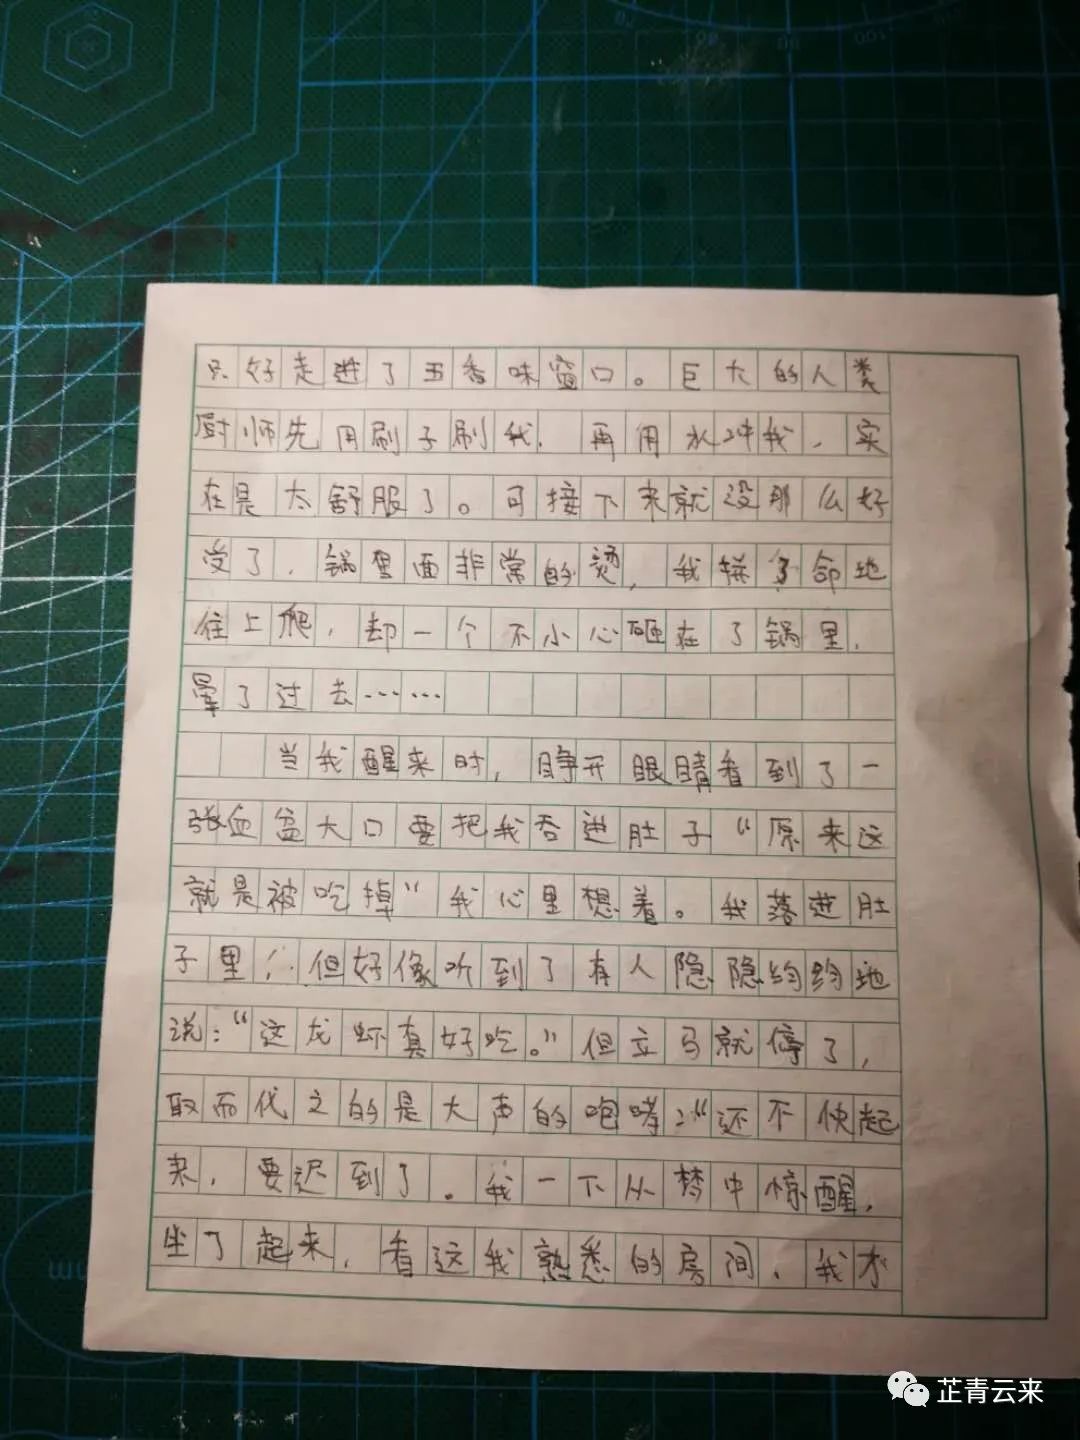 只好走进了五香味窗口。巨大的人类
厨师先用刷子刷我，再用水冲我，实
在是太舒服了。可接下来就没那么好
受了，锅里面非常的烫，我拼了命地
往上爬，却一个不小心砸在了锅里，
晕了过去……
当我醒来时，睁开眼睛看到了一
张血盆大口要把我吞进肚子“原来这
就是被吃掉”我心里想着。我落进肚
子里，但好像听到了有人隐隐约约地
说：“这龙虾真好吃。”但立马就停了，
取而代之的是大声的咆哮：“还不快起
来，要迟到了。我一下从梦中惊醒，
坐了起来，看这我熟悉的房间，我才
mm
70
80
90
100
芷青云来